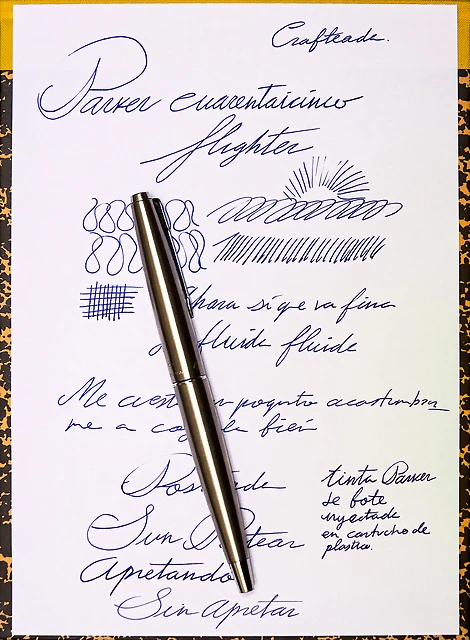 Crafteada.
Parker cuarentaicinco
flighter
Ahora si que va fina
fluida fluida
Me cuesta un poquito acostumbrar
me a cogerla bien
Posteada
Sin Postear
Apretando
Sin apretar
tinta Parker
de bote
inyectada
en cartucho de
plastico.